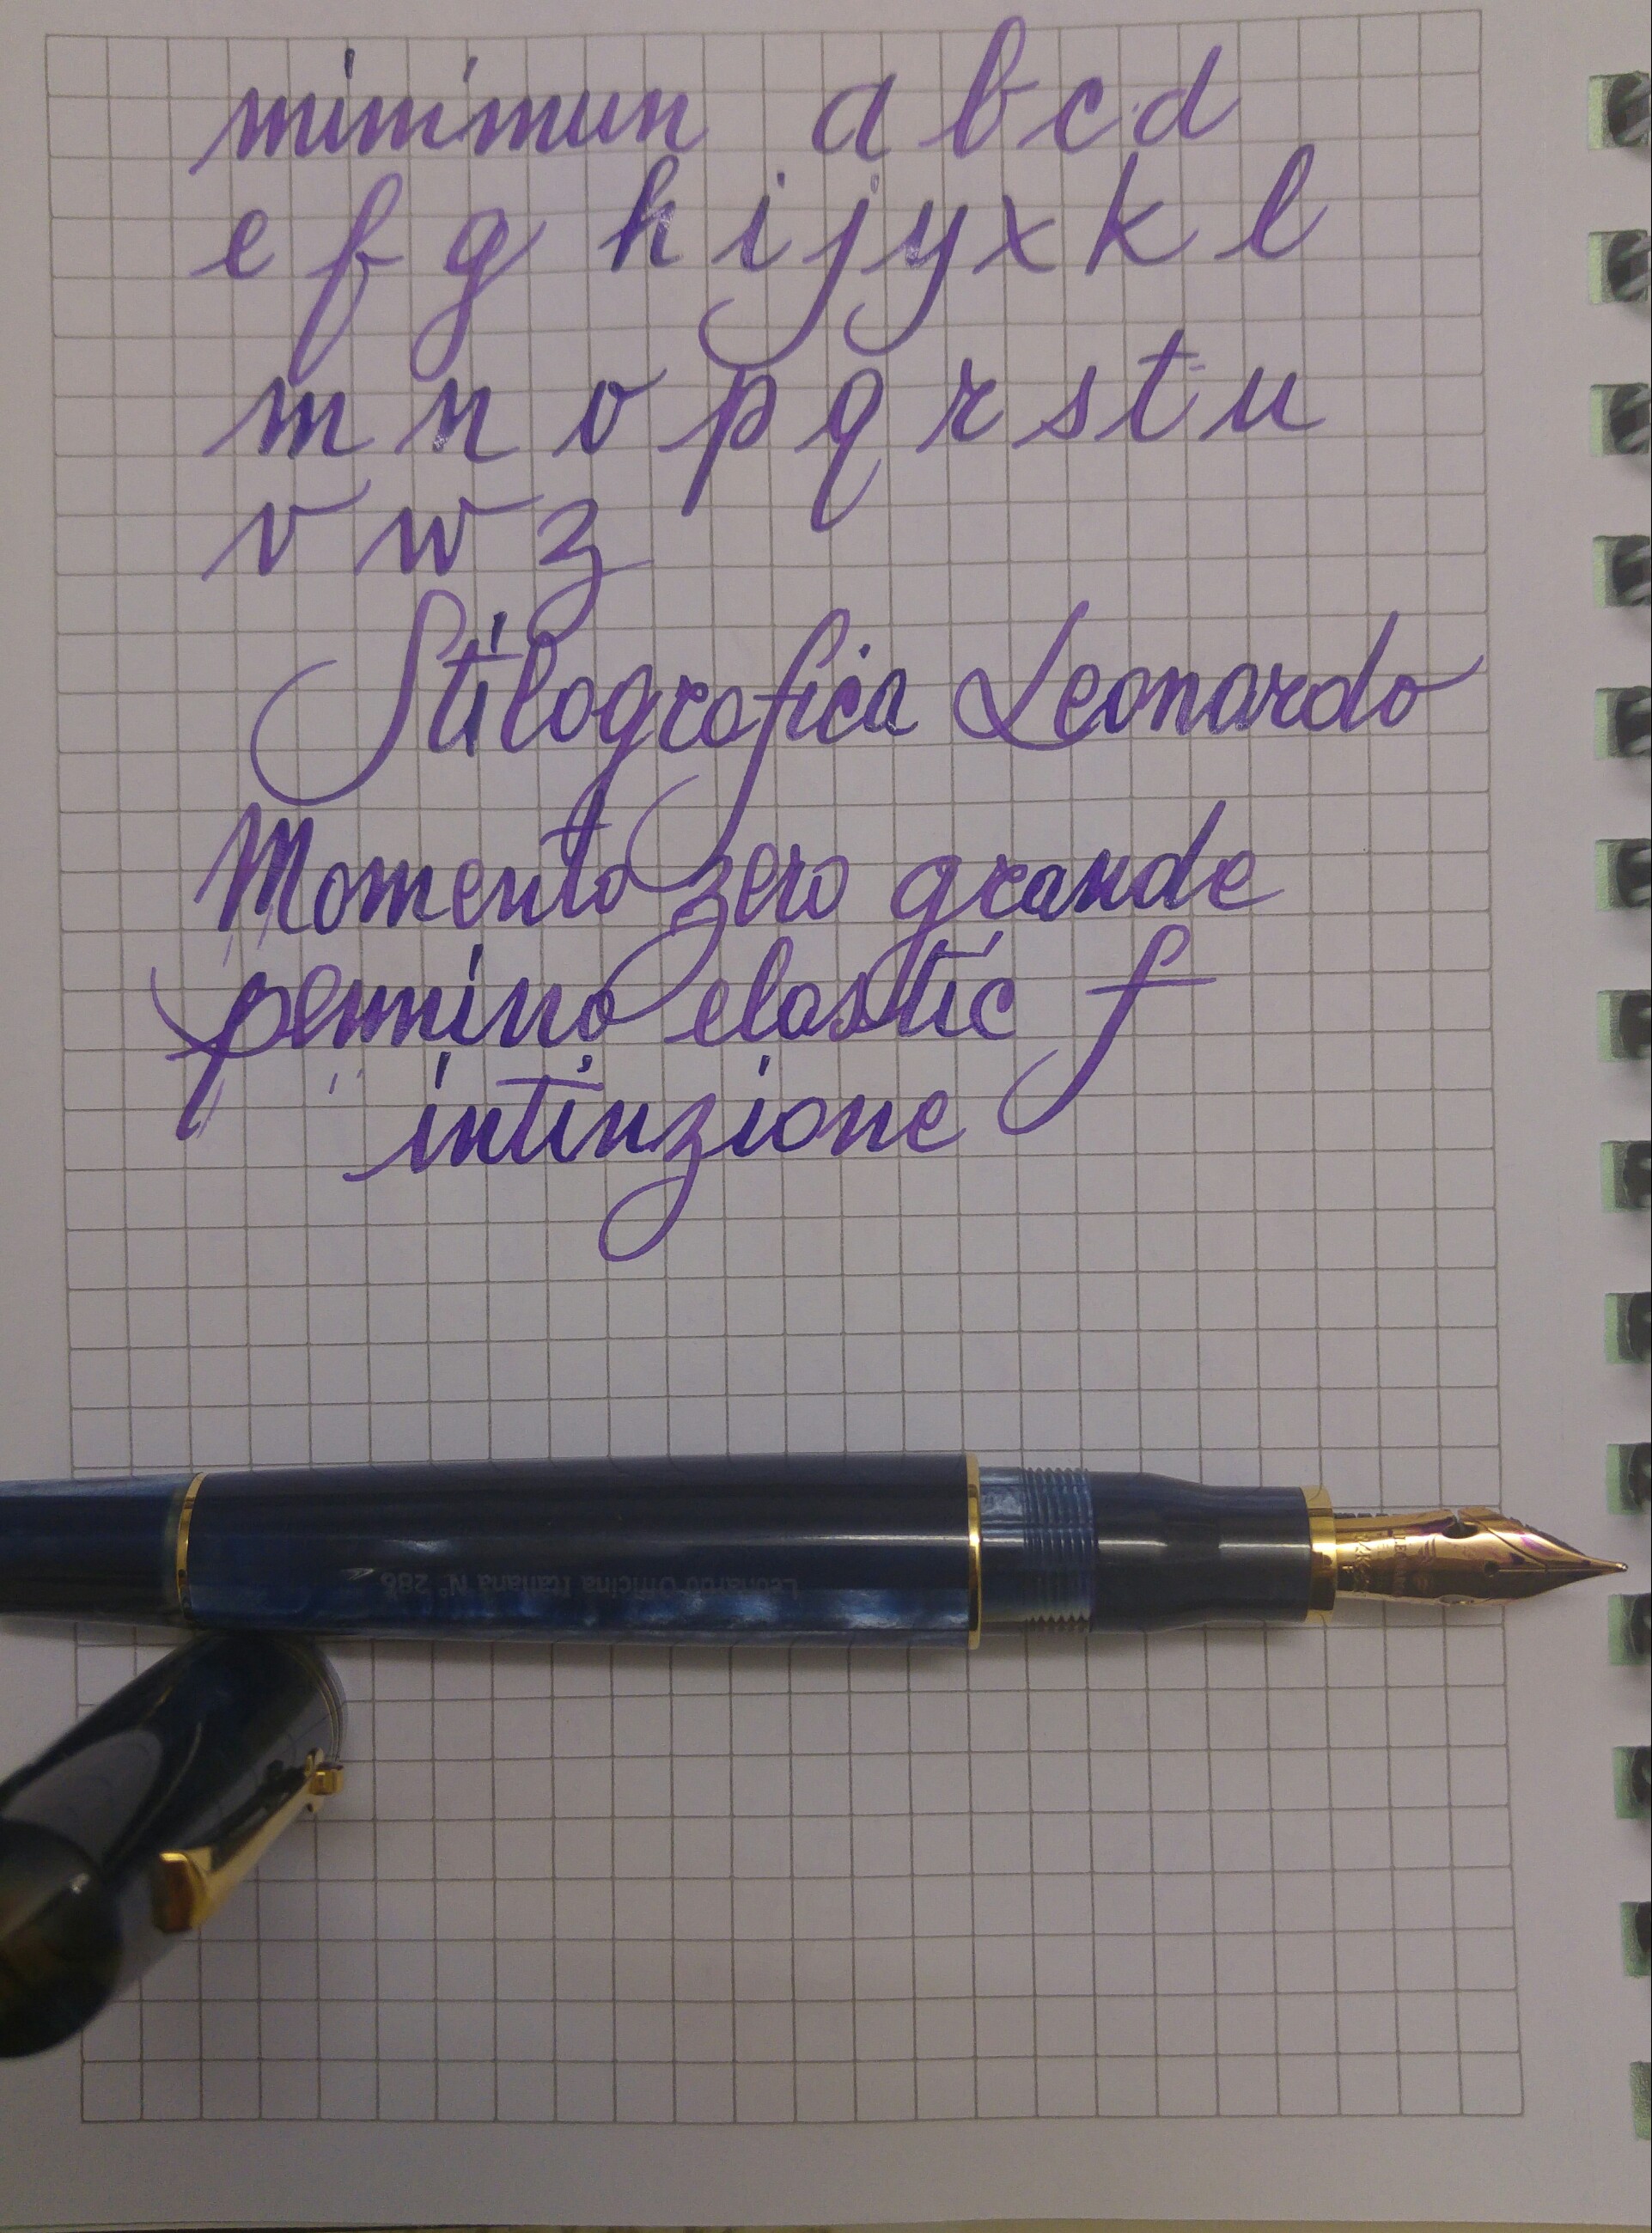 minimun a b c d
e f g h i j y x k l
m n o p q r s t u
v w z
Stilografica Leonardo
Momento zero grande
pennino elastic f
intinzione
Leonardo Officina Italiana N° 286